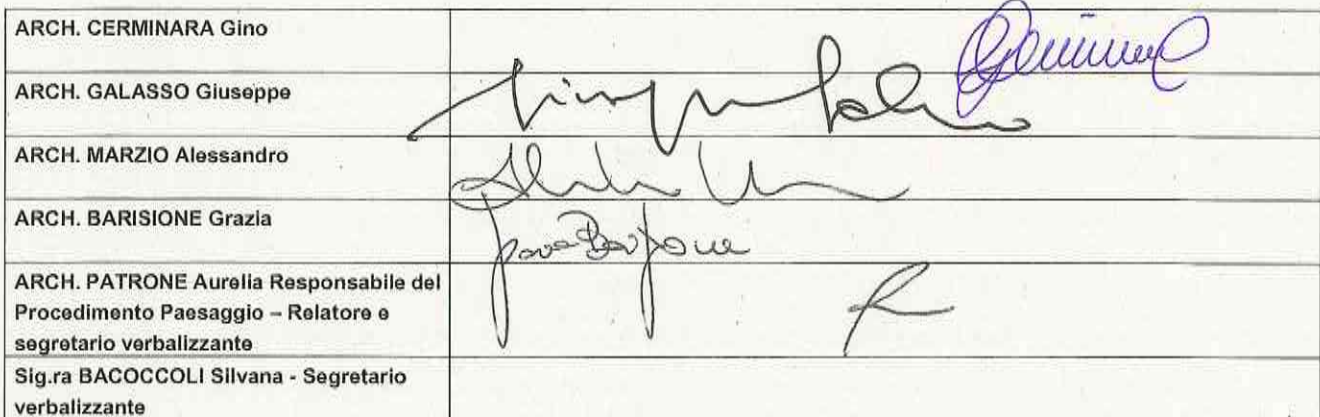 ARCH. CERMINARA Gino
ARCH. GALASSO Giuseppe
ARCH. MARZIO Alessandro
ARCH. BARISIONE Grazia
ARCH. PATRONE Aurelia Responsabile del
Procedimento Paesaggio – Relatore e
segretario verbalizzante
Sig.ra BACOCCOLI Silvana - Segretario
verbalizzante